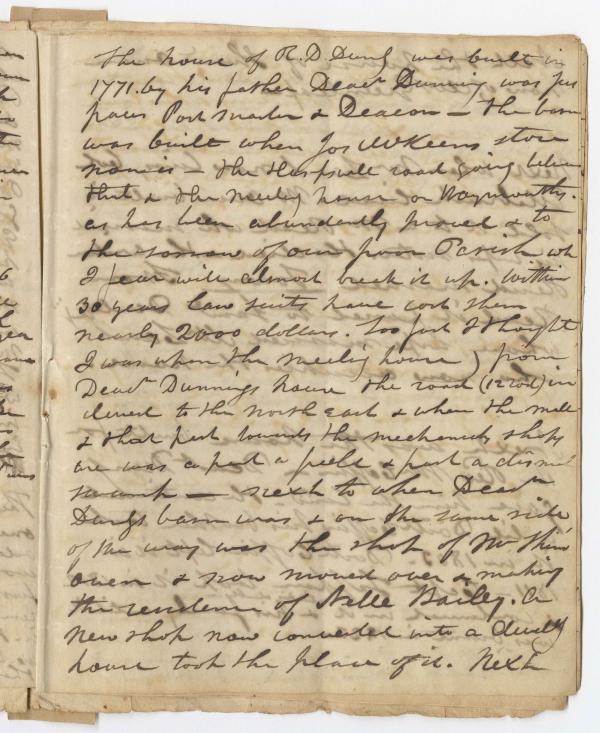 The house of R. D. Dung was built in
1771. by his father Deacn Dunning was
Post Master & Deacon — the barn
was built when Jos McKeens store
now is — the Harpswell road going between
that & the meeting house or Wagworths.
as has been abundantly proved & to
the sorrow of our poor Parish wh
I fear will almost break it up. Within
30 years law suits have cost them
nearly 2000 dollars. Too fast I thought
I was when the meeting house) from
Deacn Dunnings house the road (12 rods) in
to the North East & when the mall
& that part towards the mechanicks shops
are was a part a field & part a dismal
swamp — next to when Deacn
Dungs barn was & on the same side
of the way was the shop of Mr
Owen & now moved over & making
the residence of Nelle Bailey. A
new shop now converted into a dwellg
house took the place of it. Next